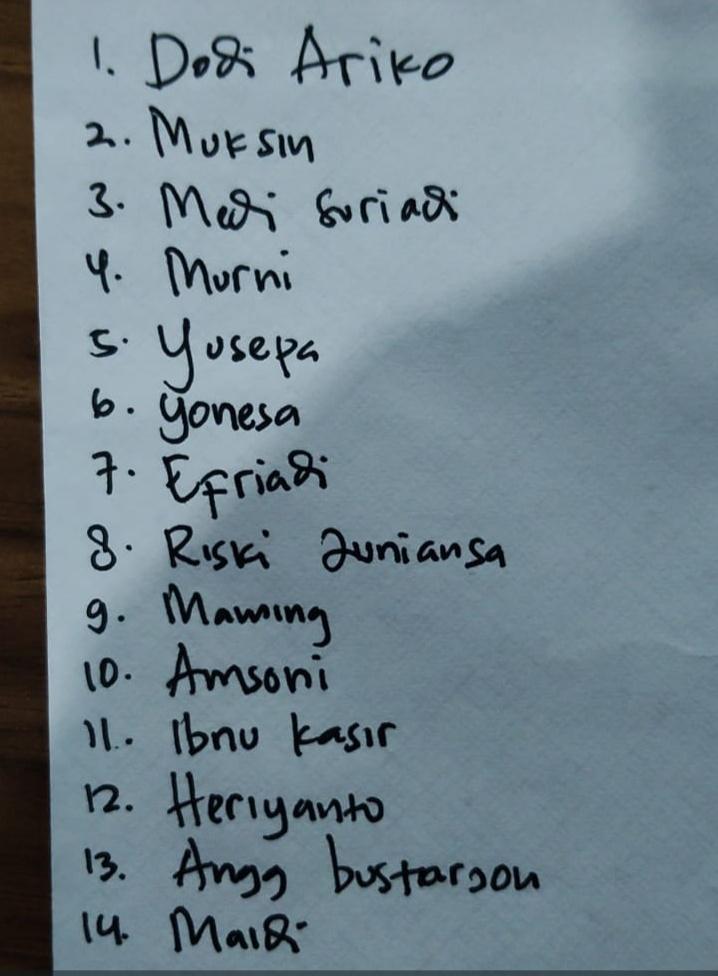 1. Dodi Ariko
2. Muksin
3. Medi Suriadi
4. Murni
5. Yusepa
6. Yonesa
7. Efriadi
8. Riski Juniansa
9.
10. Amsoni
11. Ibnu kasir
12. Heriyanto
13. Angg
14. Maidi